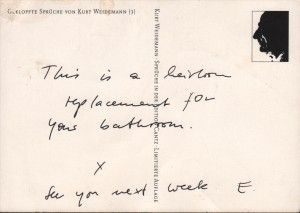 GEKLOPFTE SPRÜCHE VON KURT WEIDEMANN (3)
KURT WEIDEMANN · SPRÜCHE IN DER EDITION CANTZ · LIMITIERTE AUFLAGE
This is a heirloom
replacement for
your bathroom.
x
See you next week E.